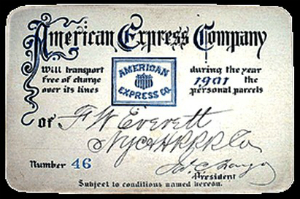 American Express Company
Will transport during the year
free of charge 1901 the
over its lines personal parcels
AMERICAN
EXPRESS CO.
of F W Everett
NYC&HRRR Co
Number 46
President
Subject to conditions named hereon.